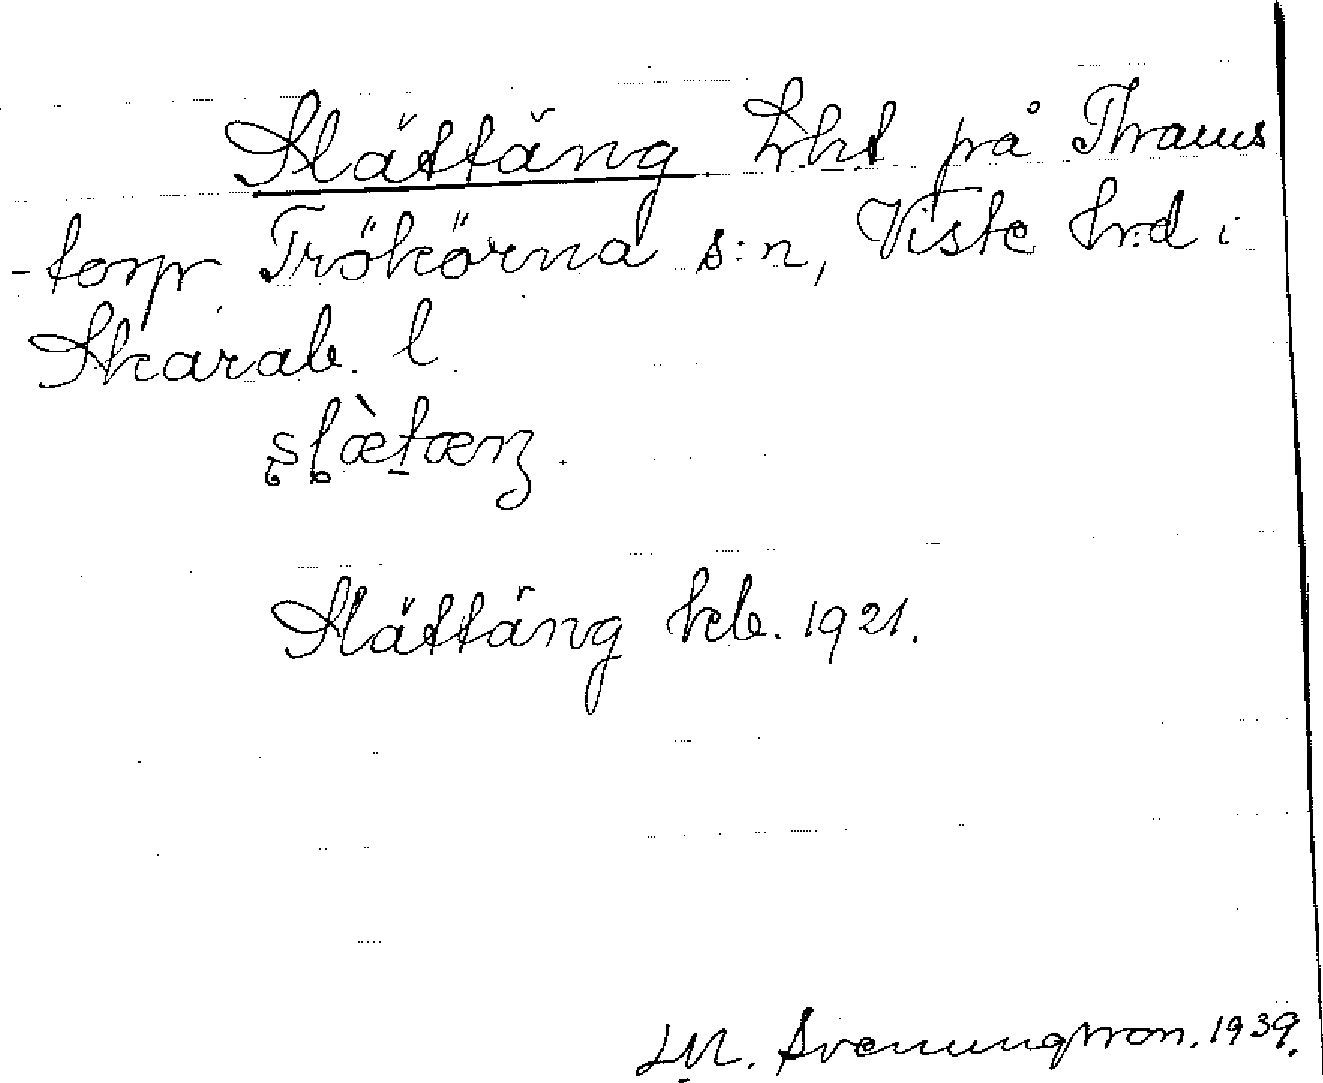 Slättäng Lht på Thraus
-torp Trökörna s:n, Viste hrd i
Skarab. l
slæ̀tæŋ.
Slättäng kb. 1921.
M. Svenungsson. 1939.